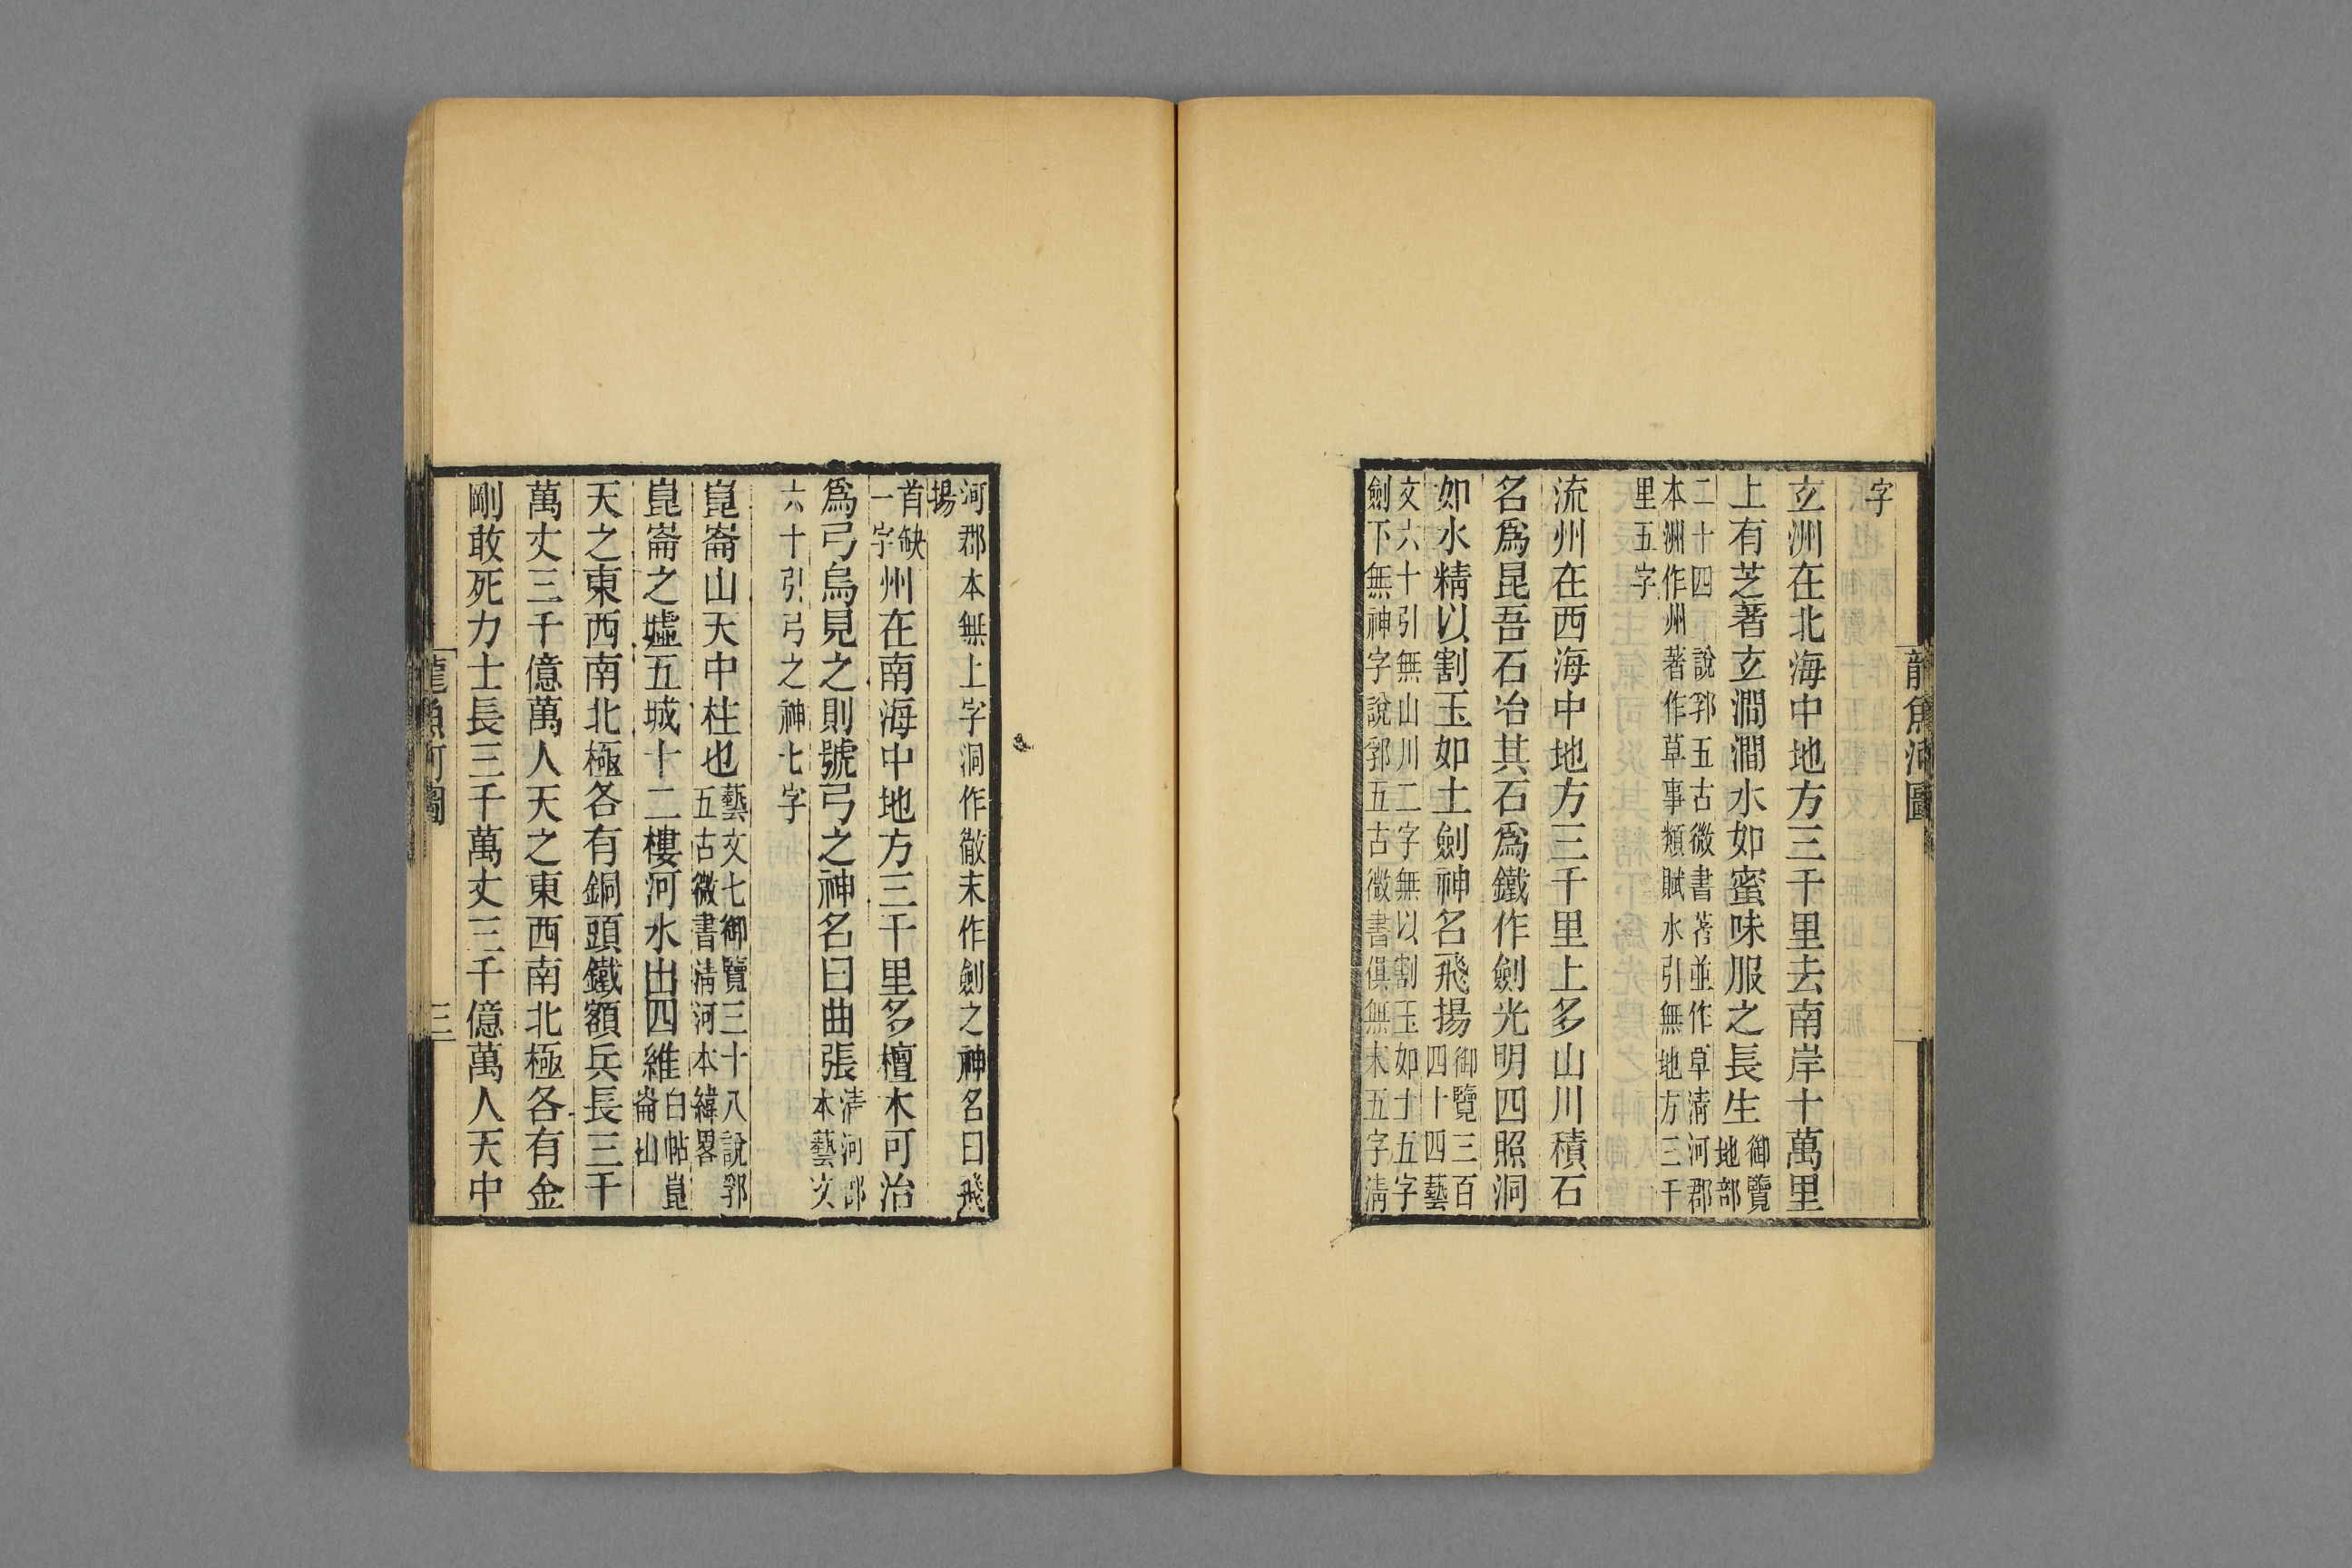 龍魚河圖
字
玄洲在北海中地方三千里去南岸十萬里
上有芝著玄澗澗水如蜜味服之長生御覽地部
二十四 說郛五古微書蓍並作草清河郡
本洲作州著作草事類賦水引無地方三千
里五字
流州在西海中地方三千里上多山川積石
名爲昆吾石冶其石爲鐵作劍光明四照洞
如水精以割玉如土劍神名飛揚御覽三百四十四藝
文六十引無山川二字無以割玉如土五字
劍下無神字說郛五古微書俱無末五字清
河郡本無上字洞作徹末作劍之神名曰飛
揚
首缺一字州在南海中地方三千里多檀木可治
爲弓烏見之則號弓之神名曰曲張清河郡本藝文
六十引弓之神七字
崑崙山天中柱也藝文七御覽三十八說郛五古微書清河本緯畧
崑崙之墟五城十二樓河水出四維白帖崑崙山
天之東西南北極各有銅頭鐵額兵長三千
萬丈三千億萬人天之東西南北極各有金
剛敢死力士長三千萬丈三千億萬人天中
龍魚河圖
三